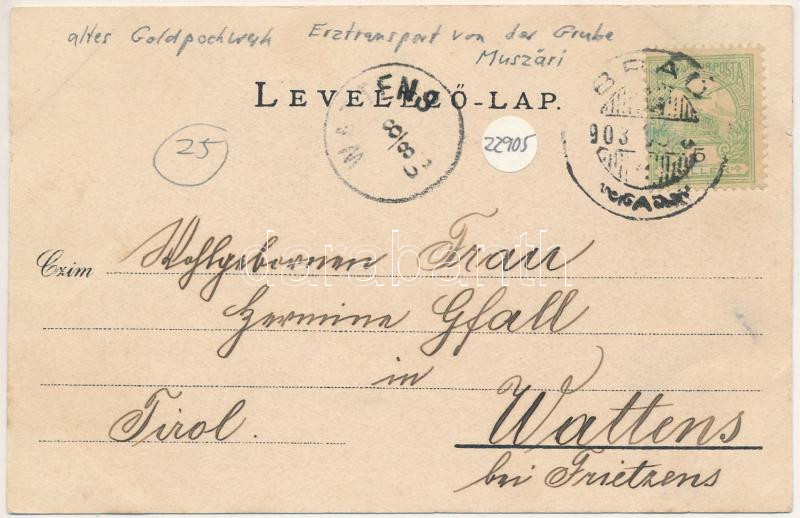 altes Goldpochwerk Erztransport von der Grube
Muszári
LEVELEZŐ-LAP.
WATTENS
8/8
25
22905
BRÁD
903
Czim
Wohlgebornen Frau
Hermine Gfall
in
Tirol.
Wattens
bei Frietzens
darabanth